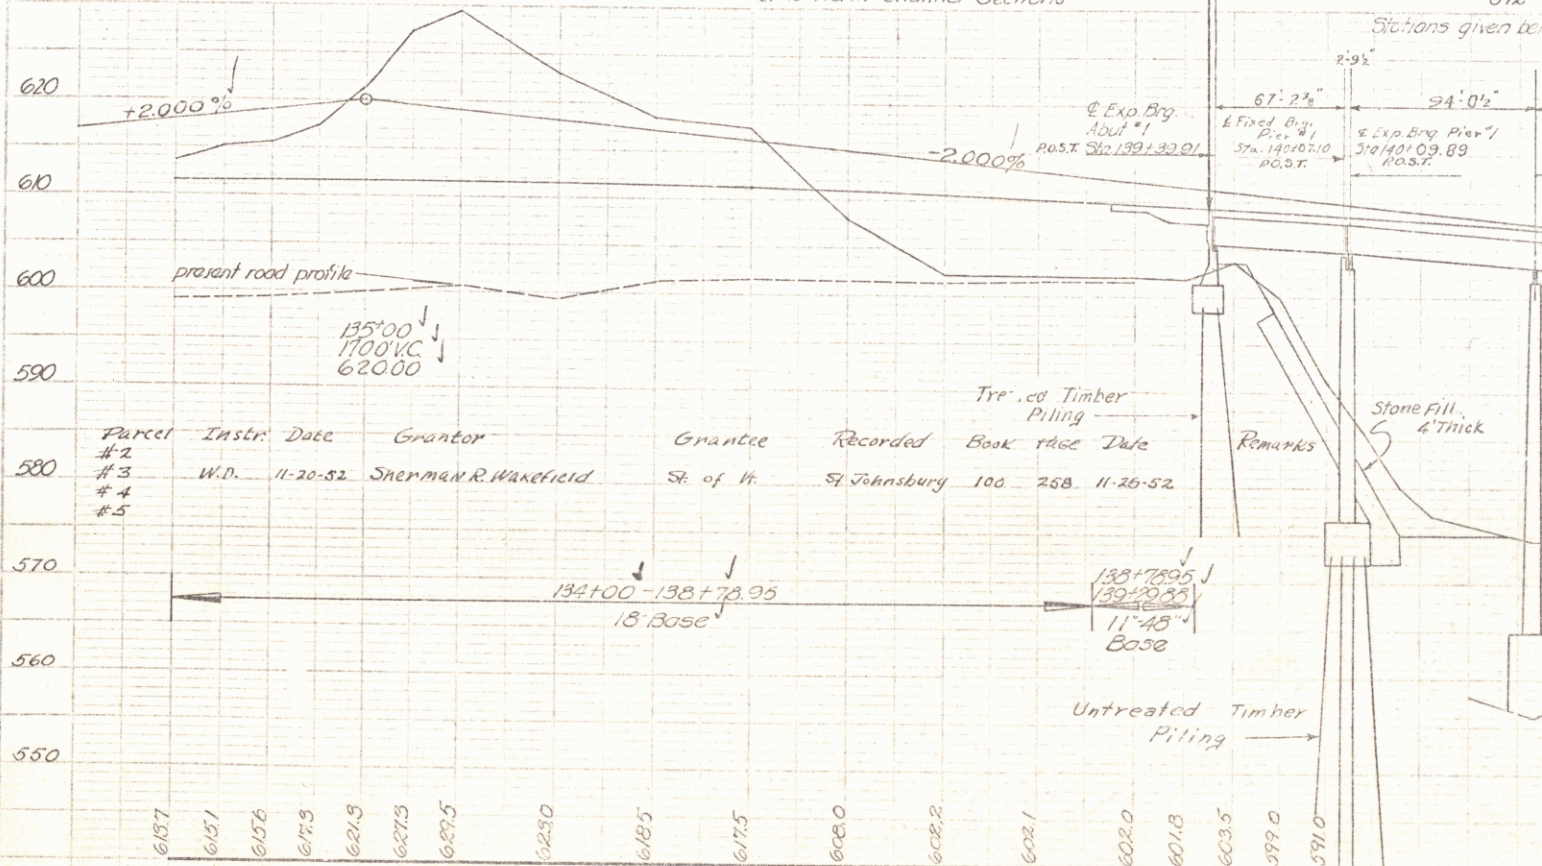 Stations given
2'-9½"
620
+2.000%
67'-2⅜"
94'-0½"
℄ Exp. Brg.
Abut #1
P.O.S.T. Sta 139+39.91
℄ Fixed Brg.
Pier #1
Sta. 140+07.10
P.O.S.T.
℄ Exp. Brg Pier #1
Sta 140+09.89
P.O.S.T.
-2.000%
610
present road profile
600
135+00
1700' V.C.
620.00
590
Timber
Piling
Stone Fill
4' Thick
Parcel Instr. Date Grantor Grantee Recorded Book Page Date Remarks
#2
580
#3 W.D. 11-20-52 Sherman R. Wakefield St. of Vt. St Johnsbury 100 258 11-26-52
#4
#5
570
134+00 - 138+78.95
18" Base
138+78.95
139+29.85
11"-48"
Base
560
Untreated Timber
Piling
550
613.7 615.1 615.6 617.3 621.9 627.3 629.5 623.0 618.5 617.5 608.0 602.2 602.1 602.0 601.8 603.5 599.0 591.0